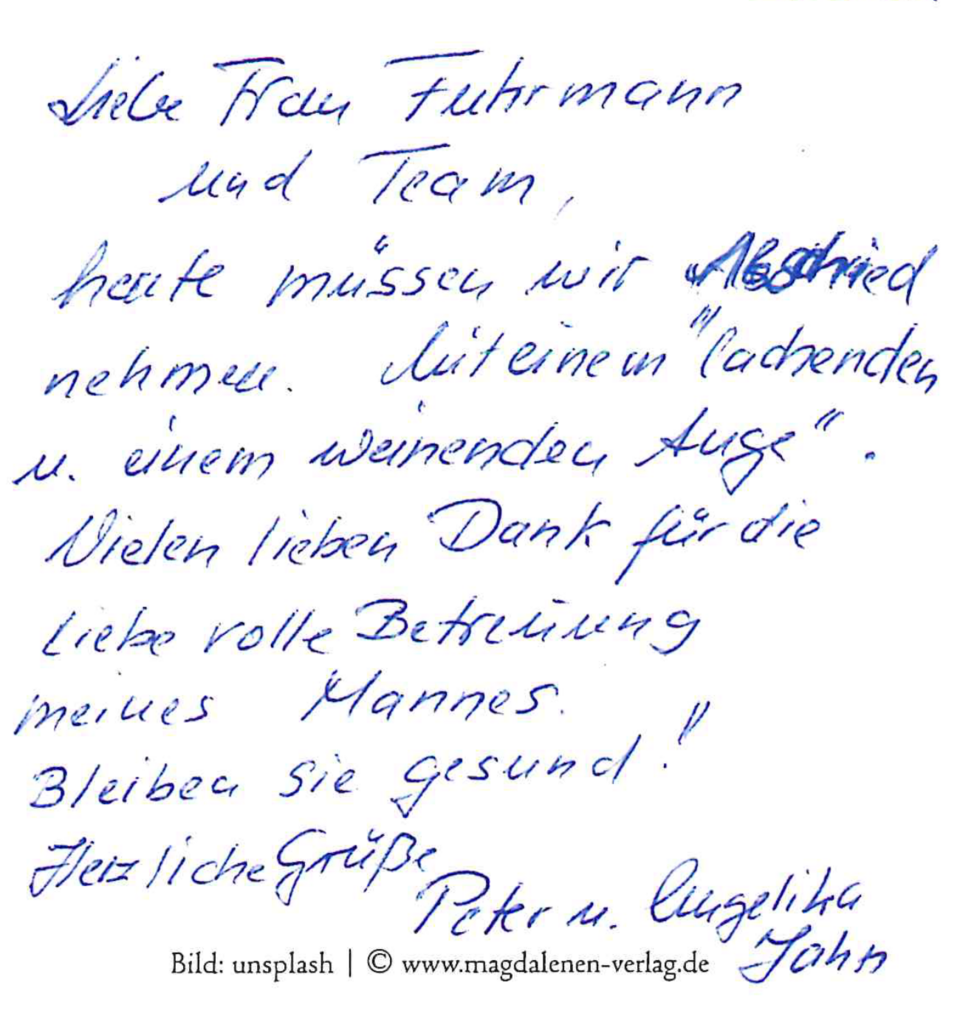 Liebe Frau Fuhrmann
und Team,
heute müssen wir Abschied
nehmen. Mit einem "lachenden
u. einem weinenden Auge".
Vielen lieben Dank für die
liebe volle Betreuung
meines Mannes.
Bleiben Sie gesund!"
Herzliche Grüße
Peter u. Angelika
Jahn
Bild: unsplash | © www.magdalenen-verlag.de